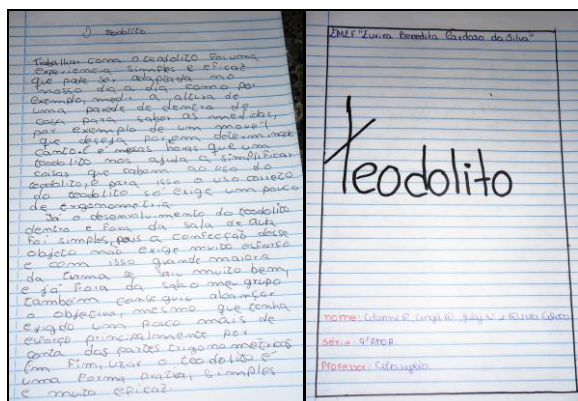 O teodolito
Trabalhar com o teodolito foi uma
experiencia simples e eficaz
que pode ser adaptada no
nosso dia a dia como por
exemplo, medir a altura de
uma parede de dentro de
casa para saber as medidas,
por exemplo de um movel
que deseja por em determinado
canto. E é nessas horas que um
teodolito nos ajuda a simplificar
coisas que cabem ao uso do
teodolito, e para isso o uso correto
do teodolito só exige uma pouco
de trigonometria.
Já o desenvolvimento do teodolito
dentro e fora da sala de aula
foi simples, pois a confecção desse
objeto não exige muito esforço
e com isso grande maioria
da turma se saiu muito bem,
e já fora da sala o meu grupo
também conseguiu alcançar
o objectivo, mesmo que tenha
exigido uma pouco mais de
esforço principalmente por
conta das partes trigonometricas
Em fim, uzar o teodolito é
uma forma pratica, simples
e muito eficaz.
EMEF "Luvira Benedita Cardoso da Silva"
Teodolito
nome:
série: 9º ANO A.
Professor: